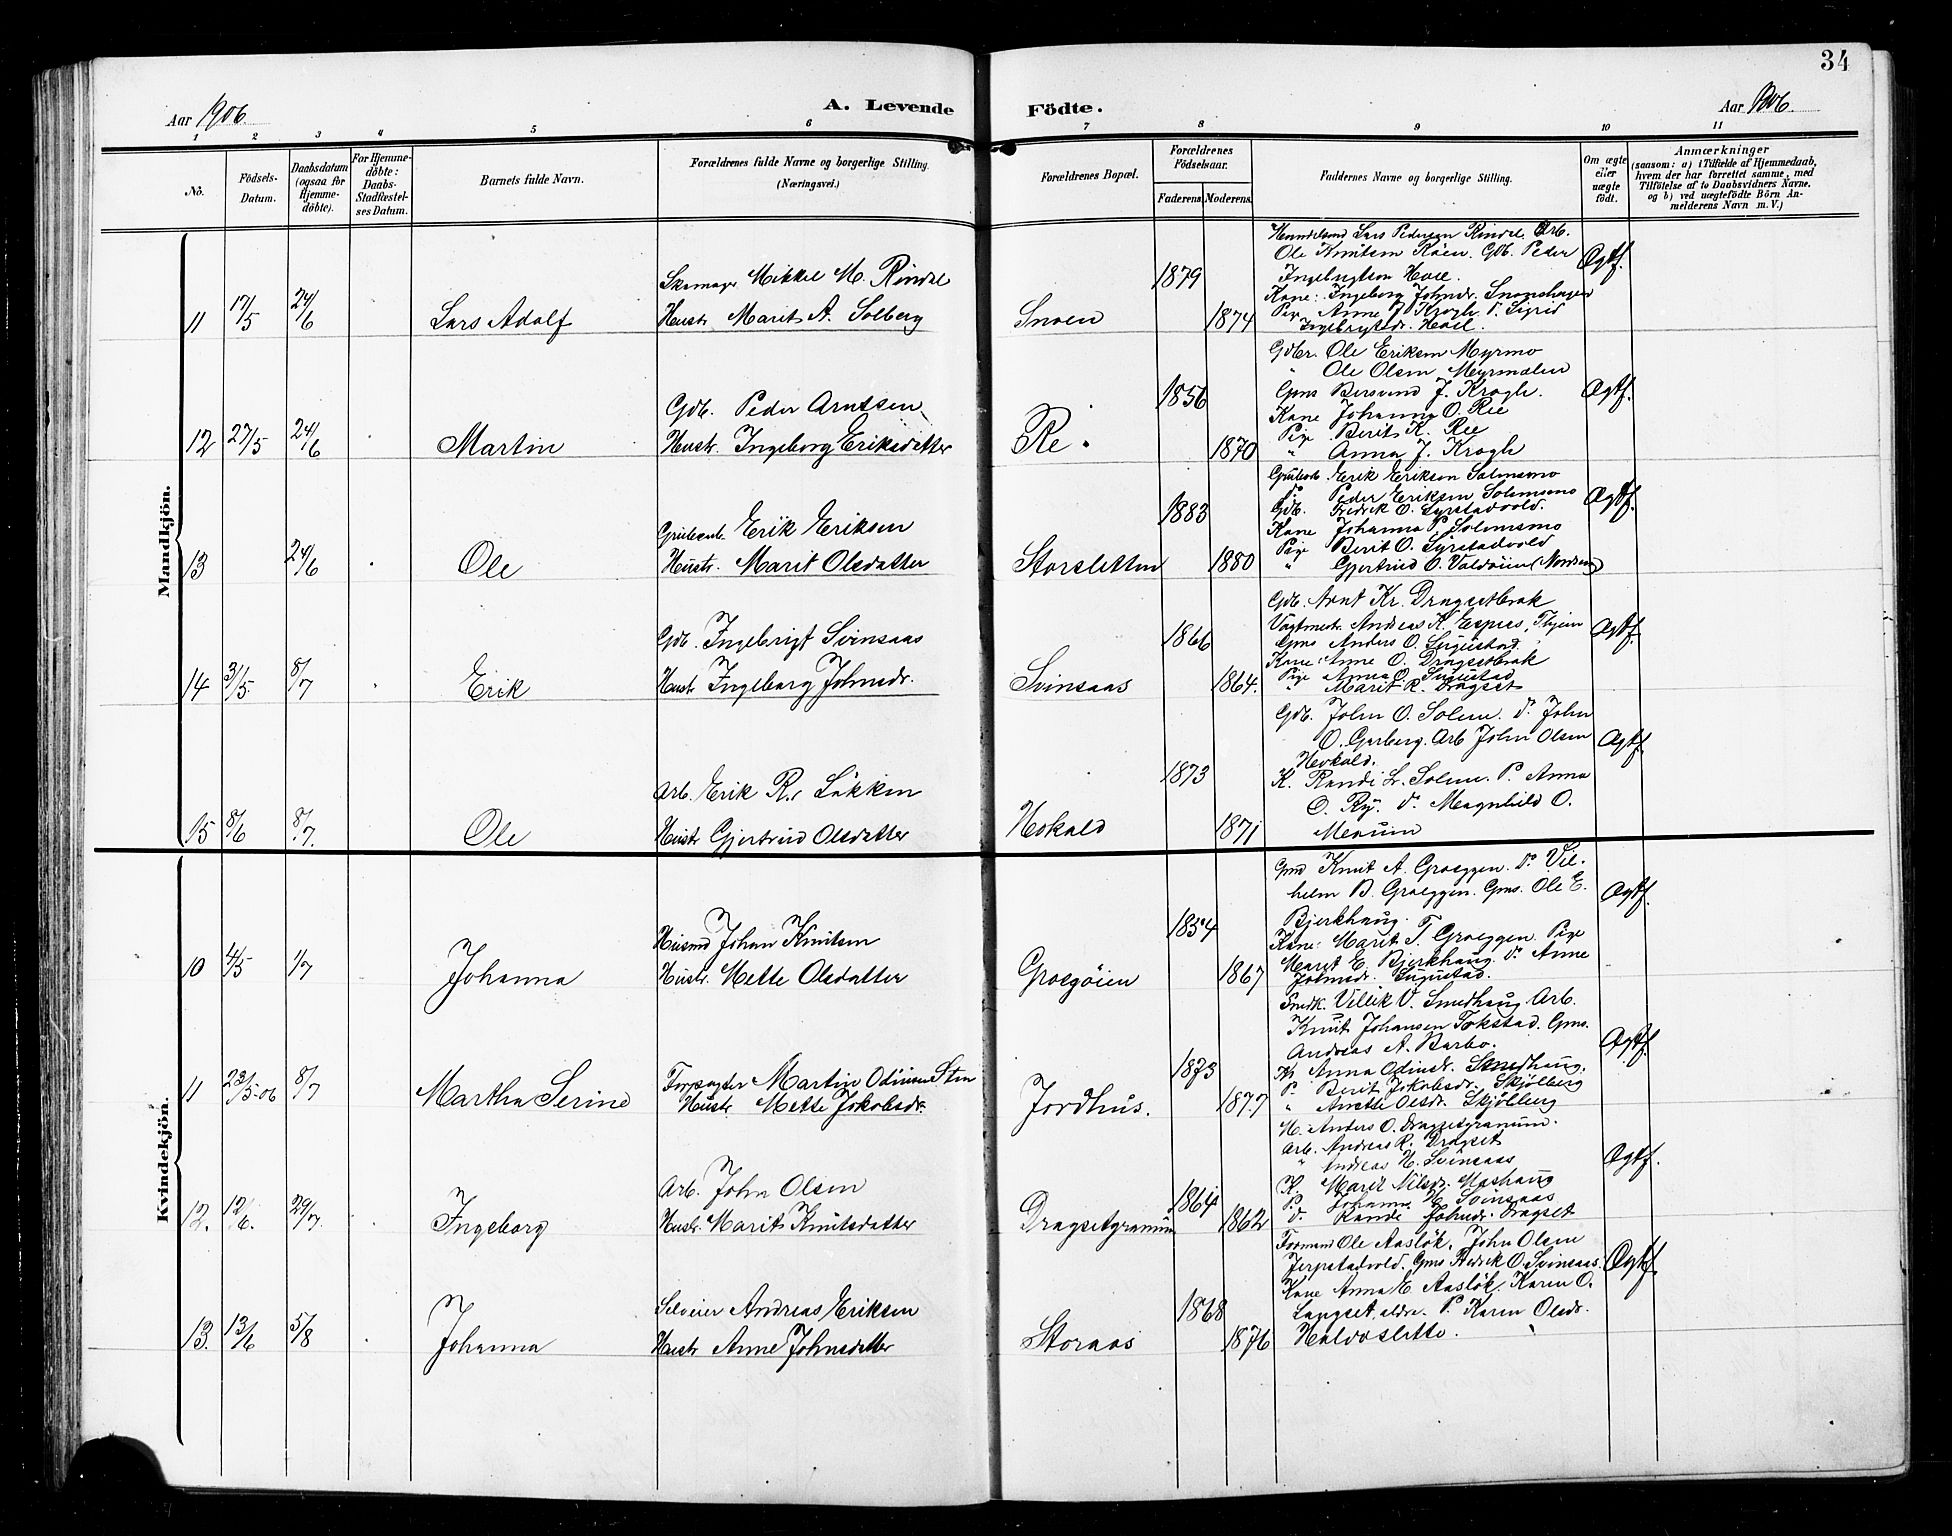 34
Aar 1906.
A. Levende Födte.
Aar 1906.
1 2 3 4 5 6 7 8 9 10 11
No.
Födsels-Datum.
Daabsdatum (ogsaa for Hjemme-döbte).
For Hjemme-döbte: Daabs-Stadfæstel-ses Datum.
Barnets fulde Navn.
Forældrenes fulde Navne og borgerlige Stilling. (Næringsvei.)
Forældrenes Bopæl.
Forældrenes Födselsaar.
Faderens. Moderens.
Faddernes Navne og borgerlige Stilling.
Om ægte eller uægte födt.
Anmærkninger
(saasom: a) i Tilfælde af Hjemmedaab,
hvem der har forrettet samme, med
Tilföielse af to Daabsvidners Navne.
og b) ved uægtefödte Börn An-
melderens Navn m. V.)
Mandkjön.
11 17/5 24/6 Lars Adolf
Skomager Mikkel M. Rindal
Hustr. Marit A. Solberg
Snoen
1879
1874
Lars Pedersen Rindal. Arb.
Ole Knutsen Röen. Gdb. Peder
Ingebrigtsen Hoel.
Kone: Ingeborg Johnsdr. Snoenshagen
Pige Anne J. Krogh. P. Sigrid
Ingebrigtsdr. Hoel.
Ægtf.
12 27/5 24/6 Martin
Gdb. Peder Arntsen
Hustr. Ingeborg Eriksdatter
Re.
1856
1870
Gdbr. Ole Eriksen Myrmo
" Ole Olsen Myrmælen
Gms Bersvend J. Krogh.
Kone Johanna O. Ree
Pige Berit K. Ree
" Anna J. Krogh
Ægtf.
13 24/6 Ole
Grubearb. Erik Eriksen
Hustr. Marit Olsdatter
Storsletten
1883
1880
Grubearb. Erik Eriksen Solemsmo
Do Peder Eriksen Solemsmo
Gdb. Fredrik O. Syrstadvold.
Kone Johanna P. Solemsmo
Pige Berit O. Syrstadvold
" Gjertrud O. Valdöien (Nordseng)
Ægtf.
14 31/5 8/7 Erik
Gdb. Ingebrigt Svinsaas
Hustr. Ingeborg Johnsdr.
Svinsaas
1866
1864.
Gdb. Arnt Kr. Dragsetbrak
Vagtmestr. Andreas K. Espaas, Thjem
Gms Anders O. Sugustad.
Kone: Anne O. Dragsetbrak
Pige Anne O. Sugustad
" Marit R. Dragset
Ægtf.
15 8/6 8/7. Ole
Arb. Erik R. Løkken
Hustr Gjertrud Olsdatter
Hokald
1873
1871
Gdb. John O. Solem. Do John
O. Garberg. Arb John Olsen
Hokald.
K. Randi L. Solem. P. Anna
O. Ry. Do Magnhild O.
Moum
Ægtf.
Kvindekjön.
10 4/5 1/7 Johanna
Husmd Johan Knutsen
Hustr. Mette Olsdatter
Groegöien
1854
1867
Gmd Knut A. Groeggen. Do Vil-
helm B. Groeggen. Gms. Ole E.
Bjerkhaug.
Kone: Marit T. Groeggen. Pige
Marit E. Bjerkhaug. Do Anne
Johnsdr. Sugustad.
Ægtf.
11 23/5-06 8/7 Martha Serine
Forpagter Martin Odinsen Sten
Hustr Mette Jakobsdr.
Jordhus.
1873
1877
Smedk. Villik V. Smedhaug Arb.
Knut Johansen Tokstad. Gms.
Andreas A. Barbo.
K. Anna Odinsdr. Smedhaug.
P. Berit Jakobsdr. Skjölberg
" Anette Olsdr. Skjölberg
Ægtf.
12. 12/6. 29/7. Ingeborg
Arb. John Olsen
Hustr. Marit Knutsdatter
Dragsetgranum
1864
1862
H. Anders O. Dragsetgranum.
Arb. Andreas R. Dragset
" Andreas H. Svinsaas
K. Marit Nilsdr. Moshaug
P. Johanna H. Svinsaas
Do Randi Johnsdr. Dragset
Ægtf.
13. 13/6 5/8 Johanna
Selveier Andreas Eriksen
Hustr Anne Johnsdatter
Storaas
1868
1876
Formand Ole Aasløk. John Olsen
Jerpstadvold. Gms Fredrik O. Svinsaas.
Kone Anna E. Aasløk. Karen O.
Langset, eldre. P. Karen Olsdr.
Haldosletto.
Ægtf.